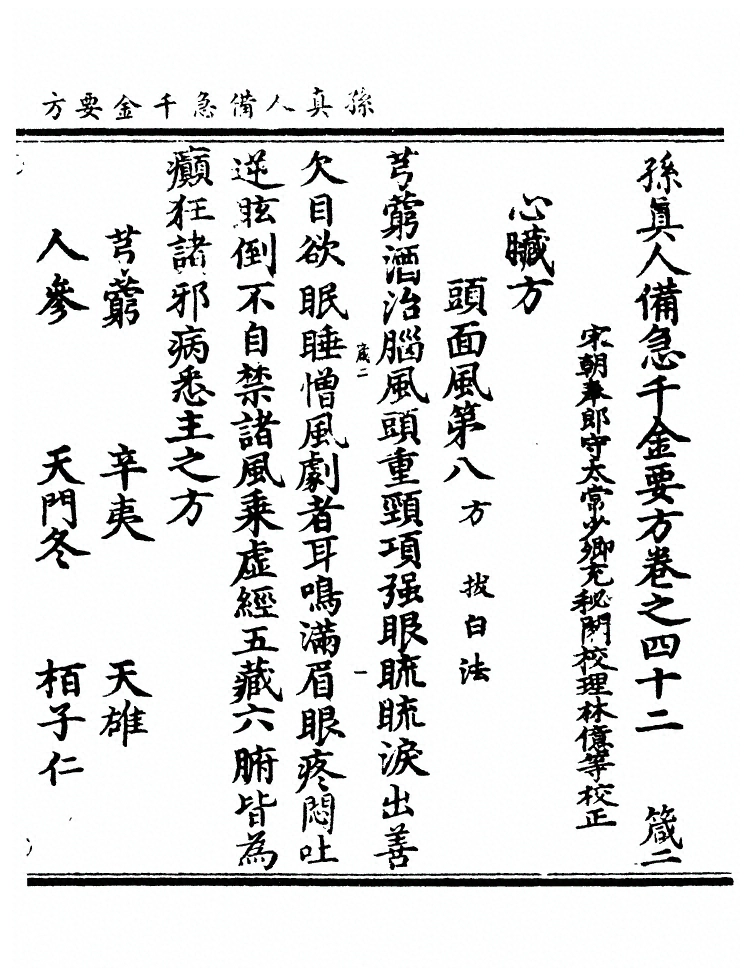 孫真人備急千金要方
孫眞人備急千金要方卷之四十二 箴二
宋朝奉郎守太常少卿充秘閣校理林億等校正
心臟方
頭面風第八 方 拔白法
芎藭酒治腦風頭重頸項强眼䀮䀮淚出善
欠目欲眠睡憎風劇者耳鳴滿眉眼疼悶吐
逆眩倒不自禁諸風乘虛經五藏六腑皆為
癲狂諸邪病悉主之方
芎藭 辛夷 天雄
人參 天門冬 栢子仁
箴二
一